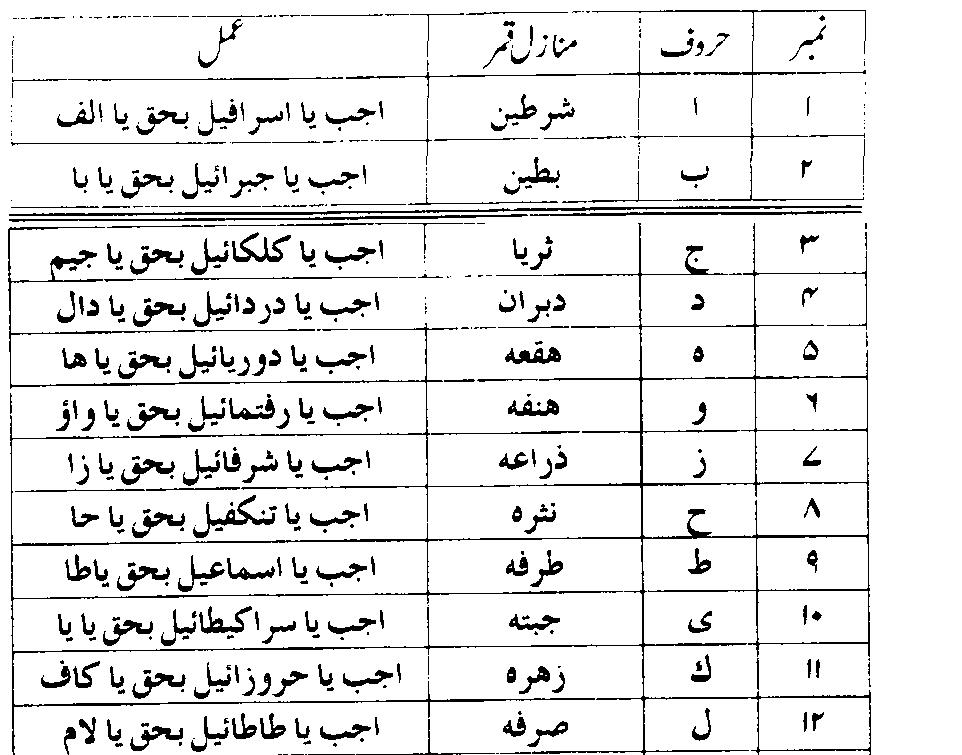 نمبر حروف منازل قمر عمل
۱ ا شرطین اجب یا اسرافیل بحق یا الف
۲ ب بطین اجب یا جبرائیل بحق یا با
۳ ج ثریا اجب یا کلکائیل بحق یا جیم
۴ د دبران اجب یا دردائیل بحق یا دال
۵ ه هقعه اجب یا دوریائیل بحق یا ها
۶ و هنفه اجب یا رفتمائیل بحق یا واؤ
۷ ز ذراعه اجب یا شرفائیل بحق یا زا
۸ ح نثره اجب یا تنکفیل بحق یا حا
۹ ط طرفه اجب یا اسماعیل بحق یاطا
۱۰ ی جبته اجب یا سراکیطائیل بحق یا یا
۱۱ ك زهره اجب یا حروزائیل بحق یا کاف
۱۲ ل صرفه اجب یا طاطائیل بحق یا لام